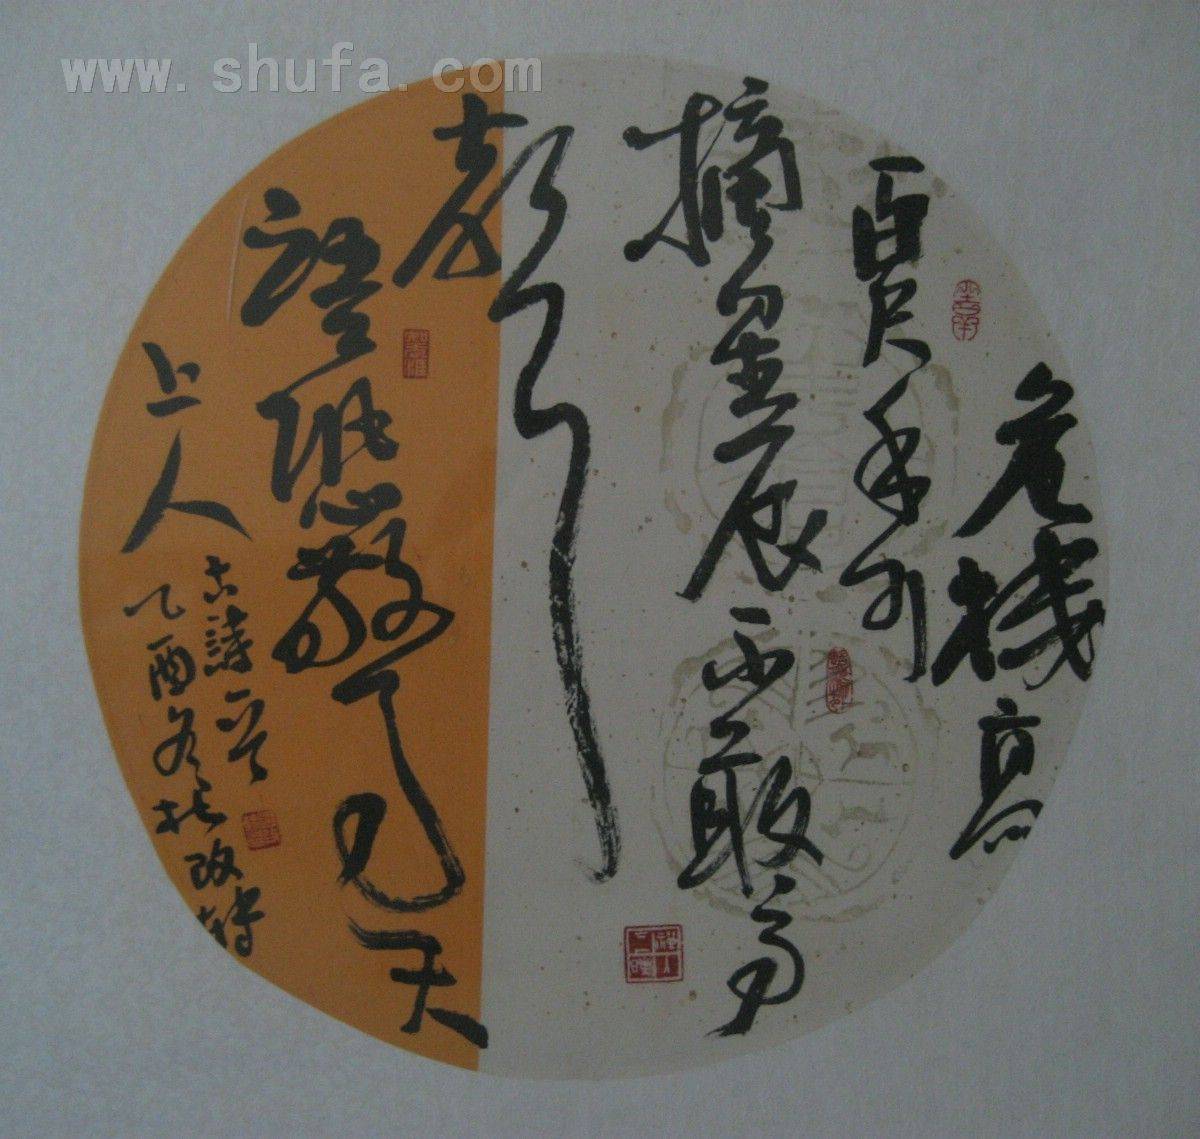 www.shufa.com
危楼高
百尺手可
摘星辰不敢高
聲
語恐驚天
上人
古詩一首
乙酉冬